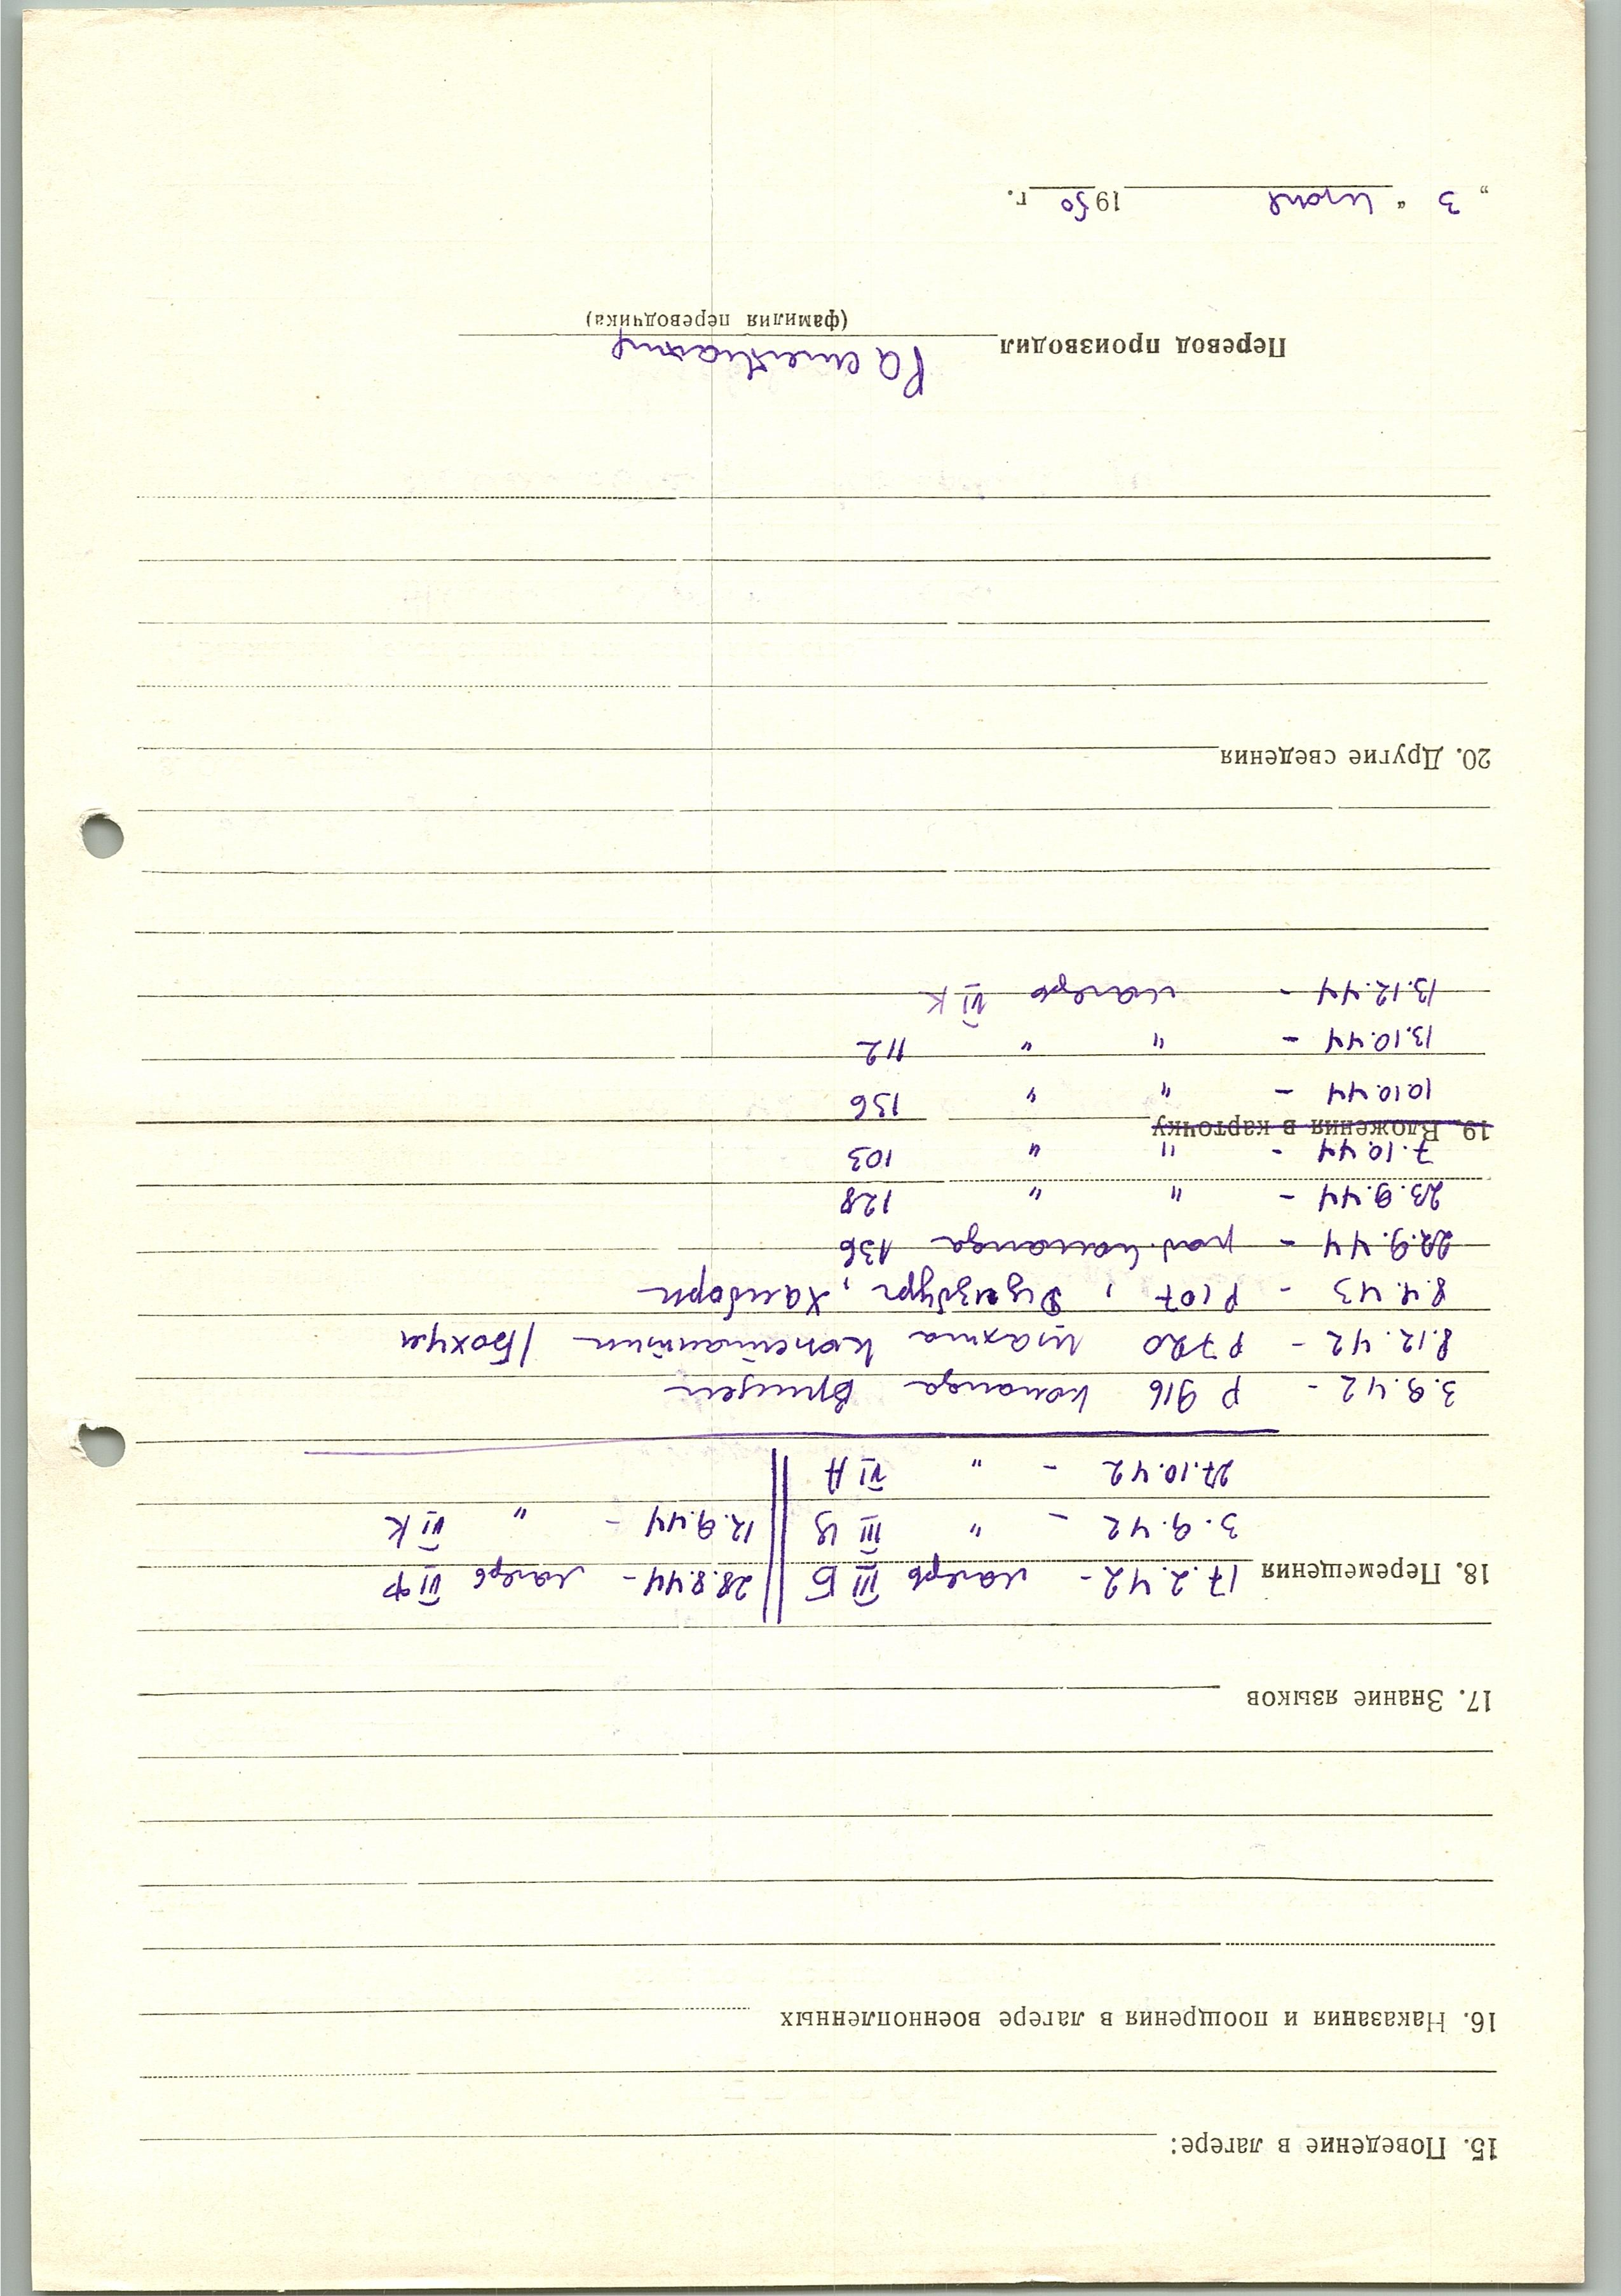 15. Поведение в лагере:
16. Наказания и поощрения в лагере военнопленных
17. Знание языков
18. Перемещения 17.2.42 - лагерь III Б || 28.8.44 - лагерь VI Ф
3.9.42 - " III Ц || 12.9.44 - " VI К
27.10.42 - " VI А
3.9.42 - Р 916 команда
8.12.42 - Р 720 шахта Константин / Бохум
8.4.43 - Р 107, Дуизбург, Хамборн
22.9.44 - раб. команда 136
23.9.44 - " " 128
7.10.44 - " " 103
19. Вложения в карточку
10.10.44 - " " 136
13.10.44 - " " 112
13.12.44 - лагерь VI К
20. Другие сведения
Перевод производил
(фамилия переводчика)
„ 3 “ июня 1950 г.